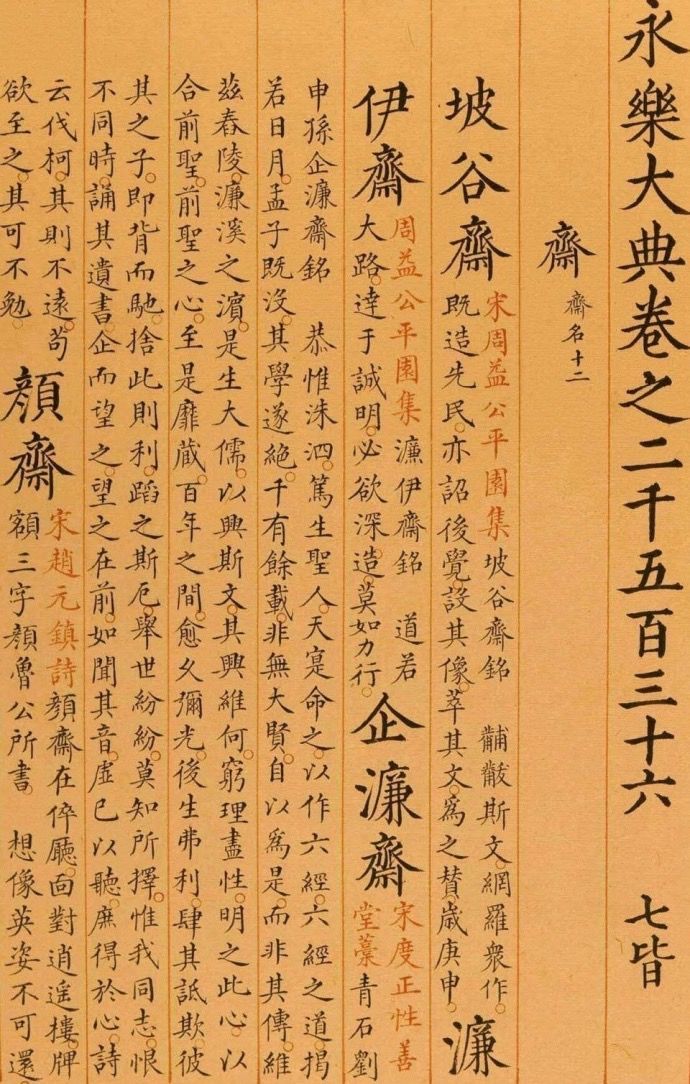 永樂大典卷之二千五百三十六 七皆
齋 齋名十二
坡谷齋 宋周益公平園集坡谷齋銘 黼黻斯文。網羅衆作。
既造先民。亦詔後覺。設其像。萃其文。爲之贊。歲庚申。 濂
伊齋 周益公平園集 濂伊齋銘 道若
大路。達于誠明。必欲深造。莫如力行。 企濂齋 宋度正性善
堂藁青石劉
申孫企濂齋銘 恭惟洙泗。篤生聖人。天寔命之。以作六經。六經之道。揭
若日月。孟子既没。其學遂絶。千有餘載。非無大賢。自以爲是。而非其傳。維
茲舂陵。濂溪之濵。是生大儒。以興斯文。其興維何。窮理盡性。明之此心。以
合前聖。前聖之心。至是靡蔵。百年之間。愈久彌光。後生弗利。肆其詆欺。彼
其之子。即背而馳。捨此則利。蹈之斯厄。舉世紛紛。莫知所擇。惟我同志。恨
不同時。誦其遺書。企而望之。望之在前。如聞其音。虛已以聽。庶得於心。詩
云伐柯。其則不遠。苟
欲至之。其可不勉。 顔齋 宋趙元鎮詩顔齋在倅廳。面對逍遙樓。牌
額三字顔魯公所書。 想像英姿不可還。